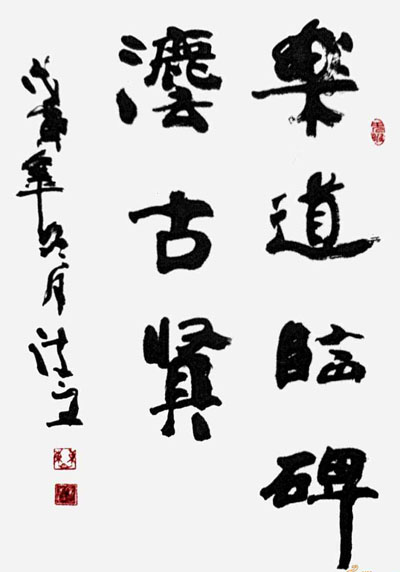 樂道臨碑
灋古賢
戊寅年冬月